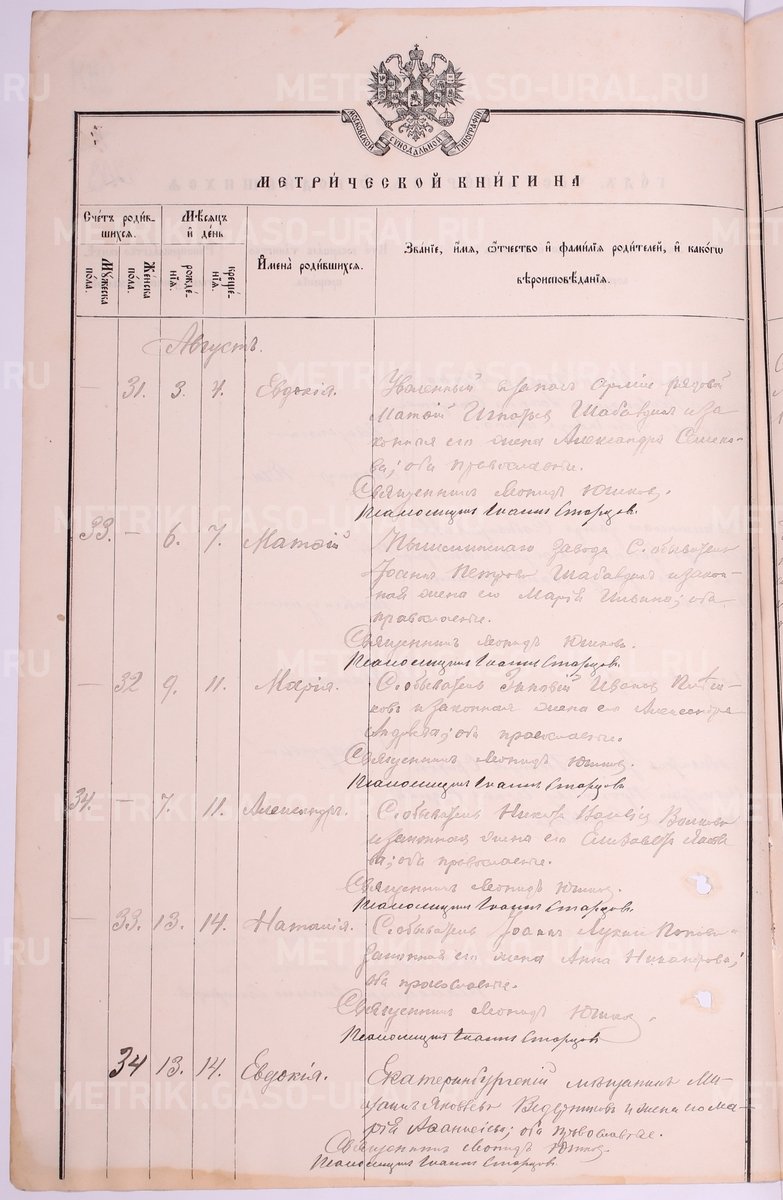 МОСКОВСКОЙ СѴНОДАЛЬНОЙ ТИПОГРАФІИ
МЕТРИ́ЧЕСКОЙ КНИ́ГИ НА
Сче́тъ роди́вшихся.
Мѣ́сяцъ и҆ де́нь
И҆мена̀ роди́вшихся.
Зва́ніе, и҆́мя, ѻ҆́тчество и҆ фами́лія роди́телей, и҆ како́гѡ вѣроисповѣ́данія.
Мꙋ́жеска по́ла.
Же́нска по́ла.
рожде́нїѧ.
креще́нїѧ.
Августъ.
— 31. 3. 4. Евдокія. Уволенный въ запасъ арміи рядовой
Матѳій Игнатьевъ Шабалинъ и за-
конная его жена Александра Семено-
ва; оба православные.
Священникъ Леонидъ Юшковъ.
Псаломщикъ Іоаннъ Старцовъ.
33. — 6. 7. Матѳій Пышминскаго завода С. обыватель
Іоаннъ Петровъ Шабалинъ и закон-
ная жена его Марія Ильина; оба
православные.
Священникъ Леонидъ Юшковъ.
Псаломщикъ Іоаннъ Старцовъ.
— 32 9. 11. Марія. С. обыватель Зиновій Ивановъ
и законная жена его Александра
Андреева; оба православные.
Священникъ Леонидъ Юшковъ.
Псаломщикъ Іоаннъ Старцовъ.
34. — 7. 11. Александръ. С. обыватель
и законная жена его Елизавета
ва; оба православные.
Священникъ Леонидъ Юшковъ.
Псаломщикъ Іоаннъ Старцовъ.
— 33. 13. 14. Наталія. С. обыватель Іоаннъ Поповъ и
законная его жена Анна Никандрова;
оба православные.
Священникъ Леонидъ Юшковъ.
Псаломщикъ Іоаннъ Старцовъ
34 13. 14. Евдокія. Екатеринбургскій мѣщанинъ Ми-
хаилъ Яковлевъ и жена его Ма-
рія Аѳанасьева; оба православные.
Священникъ Леонидъ Юшковъ.
Псаломщикъ Іоаннъ Старцовъ
METRIKI.GASO-URAL.RU